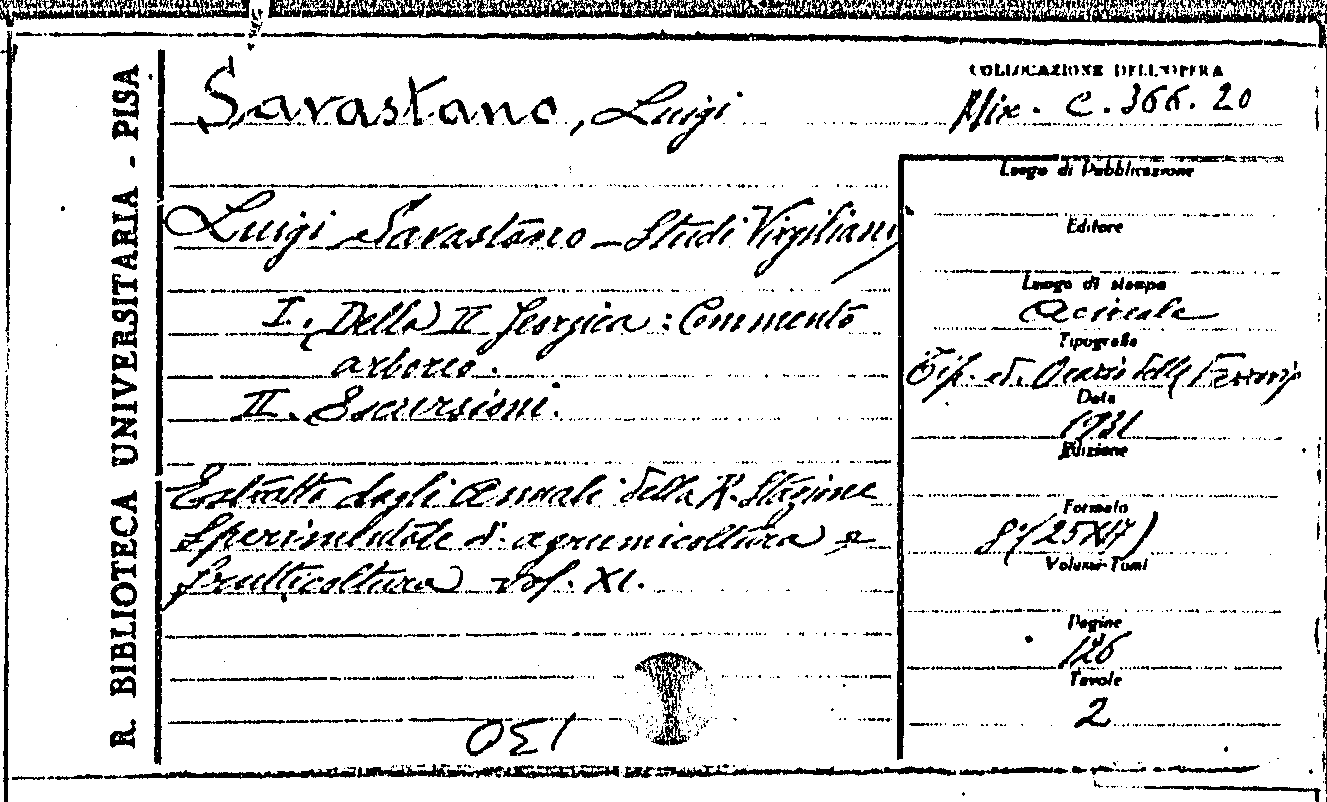 R. BIBLIOTECA UNIVERSITARIA - PISA
Savastano, Luigi
Luigi Savastano - Studi Virgiliani
I. Della II Georgica: Commento
arboreo.
II. Escursioni.
Estratto dagli Annali della R. Stazione
Sperimentale di agrumicoltura e
frutticoltura vol. XI.
COLLOCAZIONE DELL'OPERA
Mix. C. 366. 20
Luogo di Pubblicazione
Editore
Luogo di stampa
Acireale
Tipografia
Tip. ed. Orario delle Ferrovie
Data
1931
Edizione
Formato
8° (25X17)
Volumi-Tomi
Pagine
126
Tavole
2